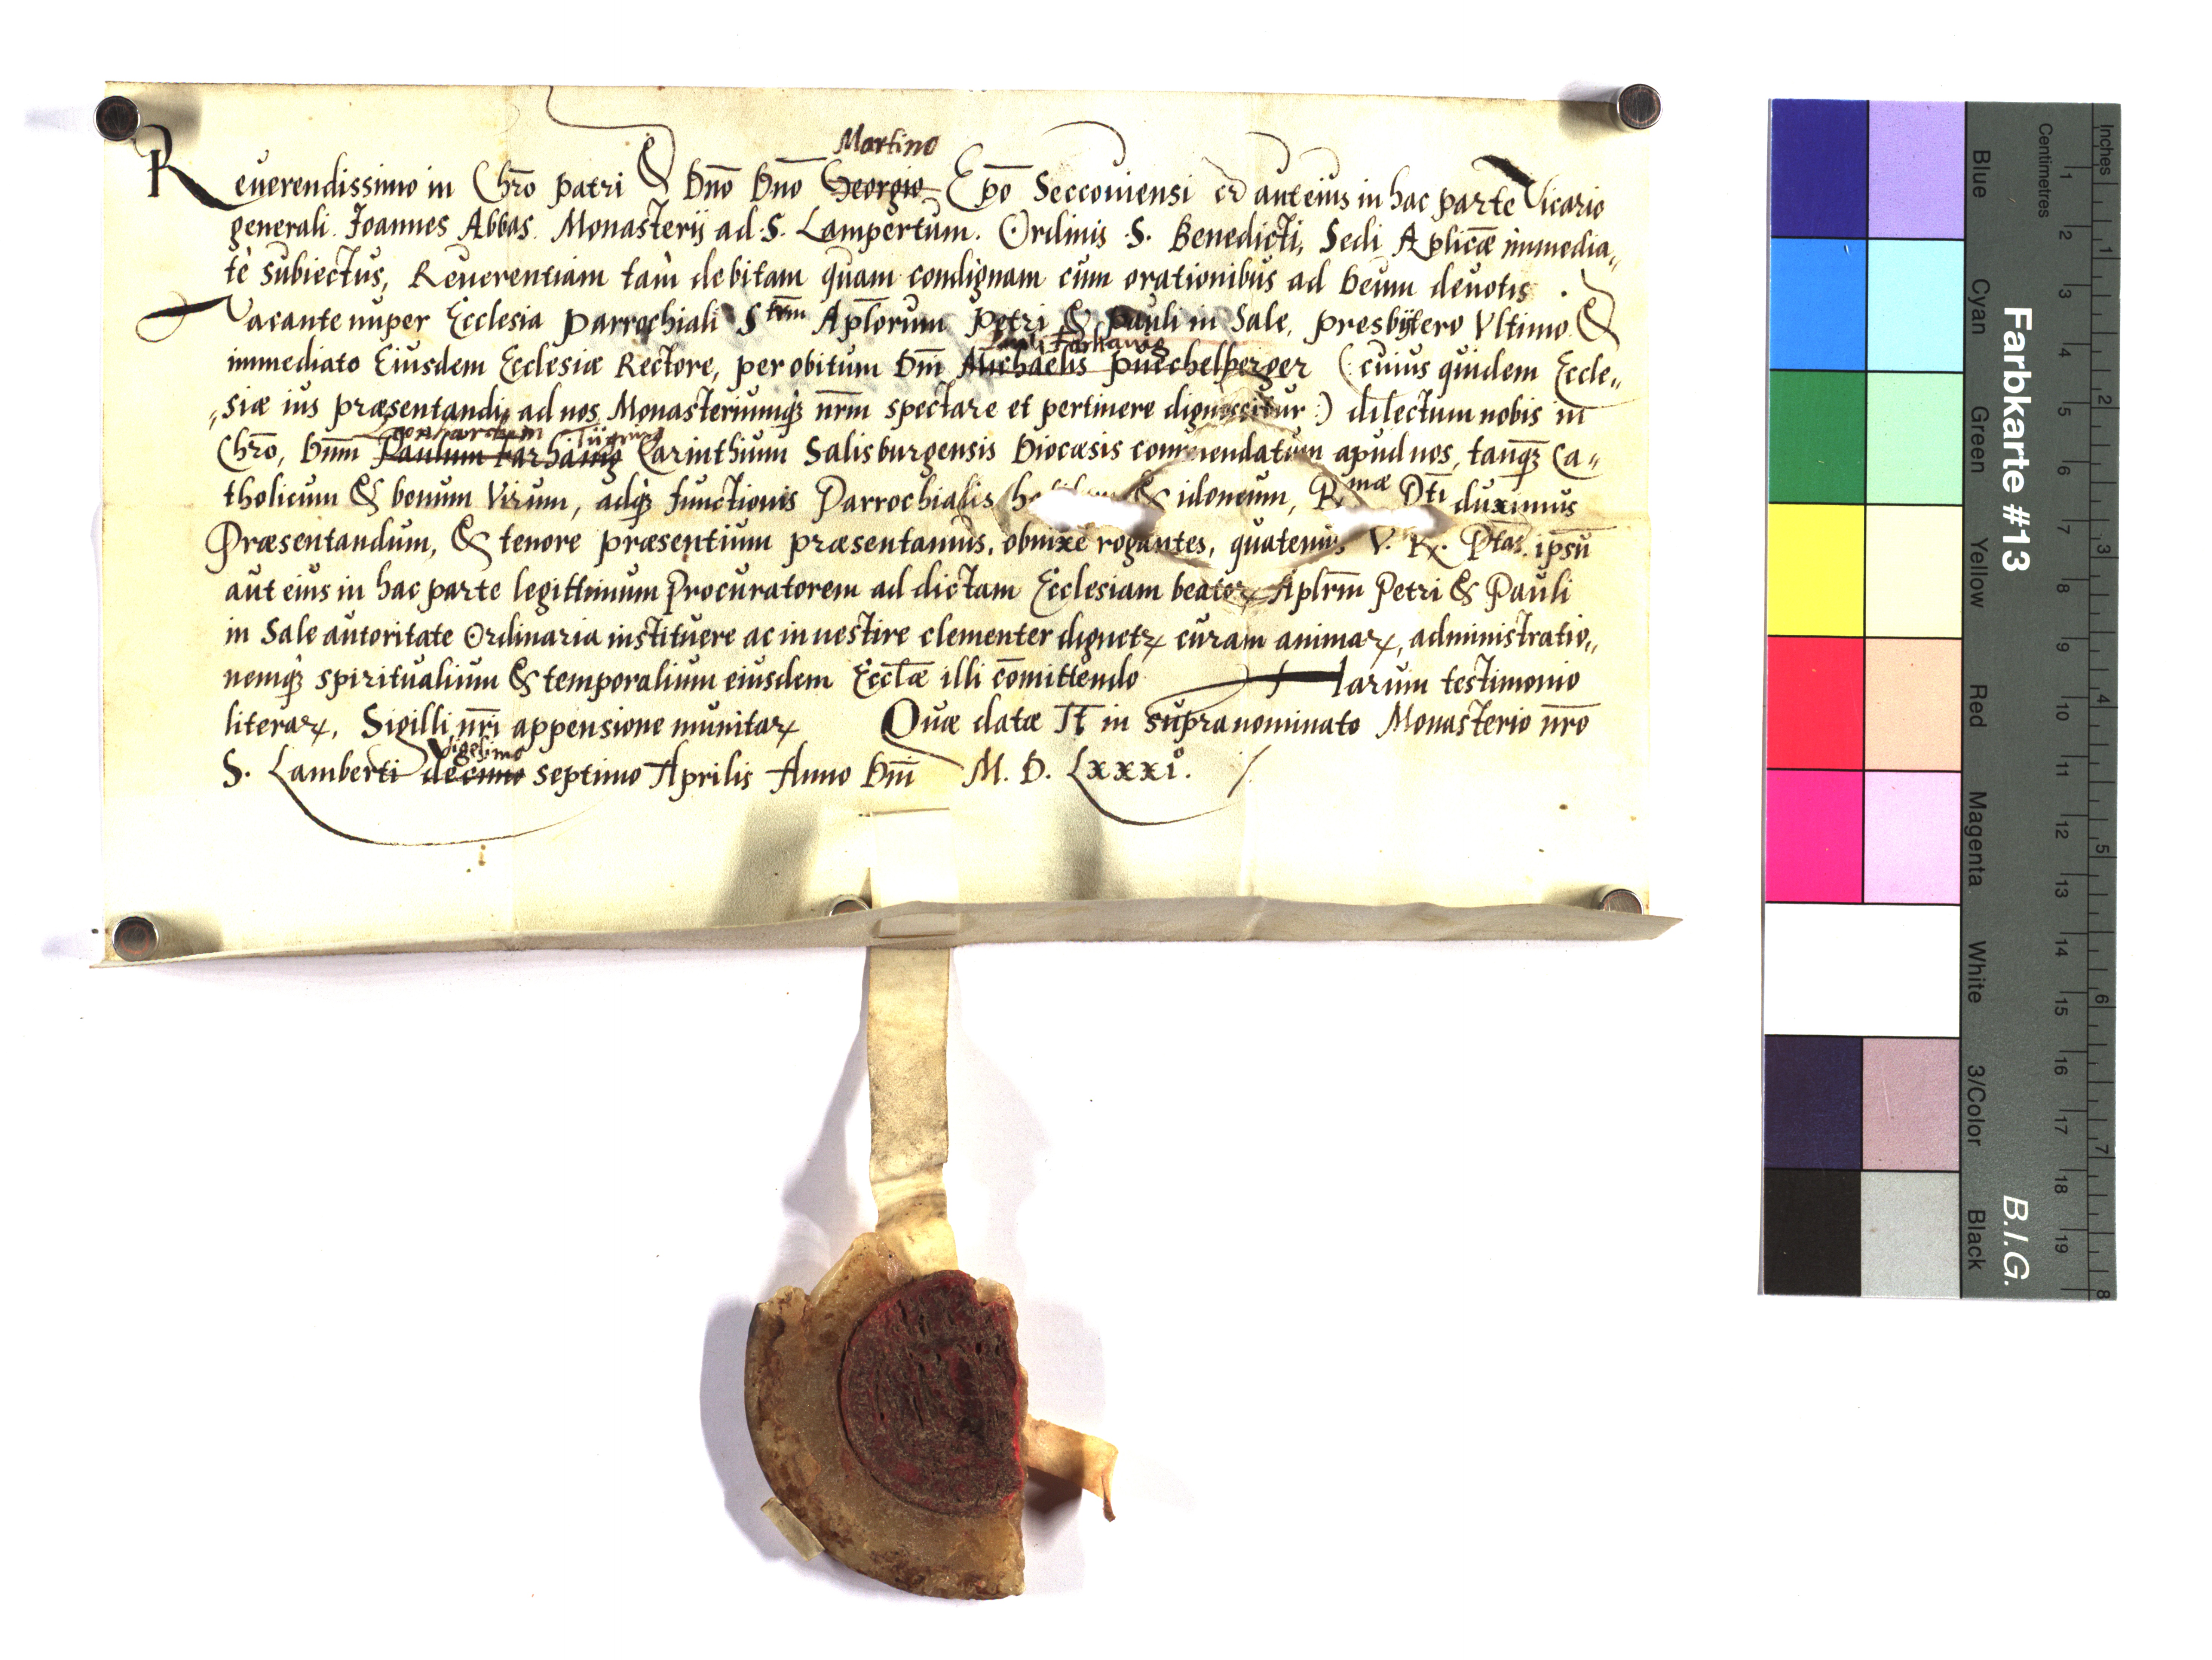 Martino
Reuerendissimo in Chr̄o patri & Dn̄o Dn̄o Georgio Ep̄o Seccouiensi et aut eius in hac parte Vicario
generali Joannes Abbas Monasterij ad S. Lampertum. Ordinis S. Benedicti, Sedi Aplicæ immedia„
tè subiectus, Reuerentiam tam debitam quam condignam cum orationibus ad Deum deuotis. &
Vacante nuper Ecclesia Parrochiali Stm̄ Aplorum Petri & Pauli in Sale, presbÿtero Vltimo &
Pauli Farhamg
immediato Eiusdem Ecclesiæ Rectore, per obitum Dn̄i Michaelis Puechelperger (: cuius quidem Eccle„
„siæ ius præsentandi, ad nos Monasteriumq́ꝫ nr̄m spectare et pertinere dignoscitur :) dilectum nobis in
Leonhardum
Chr̄o, Dn̄m Paulum Farhamg Carinthium Salisburgensis Diocæsis commendatum apud nos, tanq̄ꝫ Ca„
tholicum & bonum Virum, adq́ꝫ functionis Parrochialis & idoneum, Rmæ Dti duximus
Præsentandum, & tenore præsentium præsentamus, obnixè rogantes, quatenus V. R. Dtas. ipsū
aut eius in hac parte legittimum Procuratorem ad dictam Ecclesiam beatoꝝ Aplr̄m Petri & Pauli
in Sale autoritate Ordinaria instituere ac inuestire clementer dignetꝝ curam animaꝝ, administratio„
nemq́ꝫ spiritualium & temporalium eiusdem Eccl̄æ illi cōmittendo Harum testimonio
literaꝝ, Sigilli nr̄i appensione munitaꝝ Quæ datæ st̄ in supra nominato Monasterio nr̄o
Vigesimo
S. Lamberti decimo septimo Aprilis Anno Dn̄i M. D. Lxxxi°.
Farbkarte #13
B.I.G.
Inches
1 2 3 4 5 6 7 8
Centimetres
1 2 3 4 5 6 7 8 9 10 11 12 13 14 15 16 17 18 19
Blue
Cyan
Green
Yellow
Red
Magenta
White
3/Color
Black